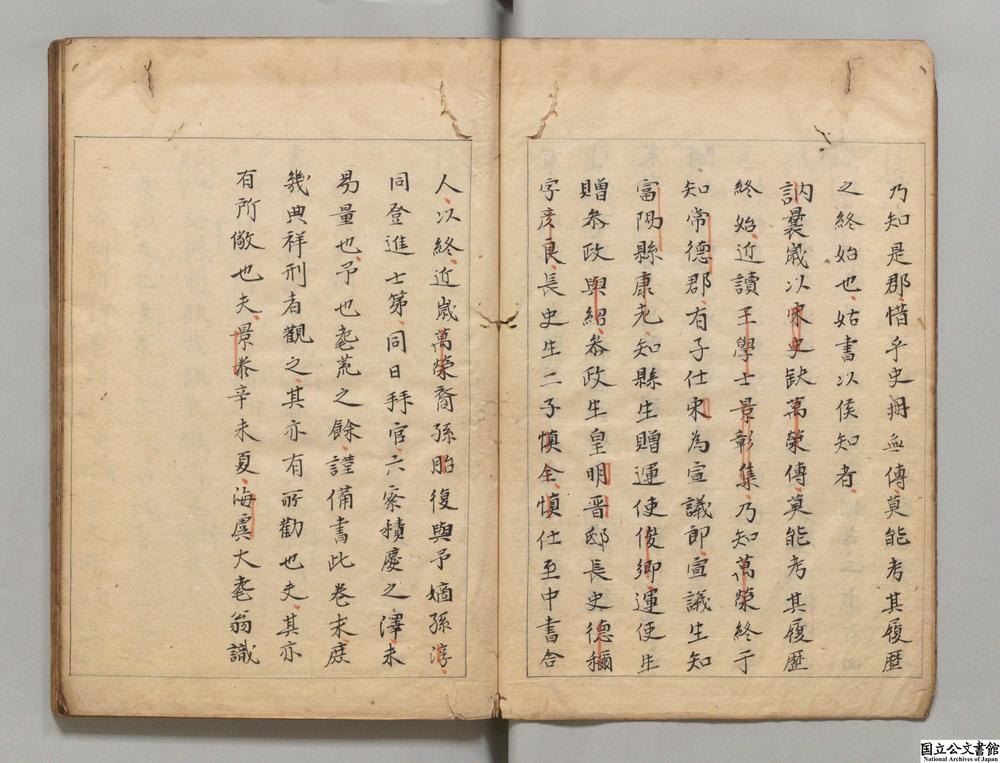 乃知是郡惜乎史册無傳莫能考其履歴
之終始也姑書以俟知者
訥曩歲以宋史缺萬榮傳莫能考其履歴
終始近讀王學士景彰集乃知萬榮終于
知常德郡有子仕宋為宣議郎宣議生知
富陽縣康老知縣生贈運使俊卿運使生
贈叅政與紹叅政生皇明晋邸長史德稱
字彦良長史生二子慎全慎仕至中書舎
人以終近歲萬榮裔孫胎復與予嫡孫淳
同登進士第同日拜官六察積慶之澤未
易量也予也耄荒之餘謹備書此卷末庶
幾典祥刑者觀之其亦有所勸也夫其亦
有所儆也夫景泰辛未夏海虞大耄翁識
国立公文書館
National Archives of Japan